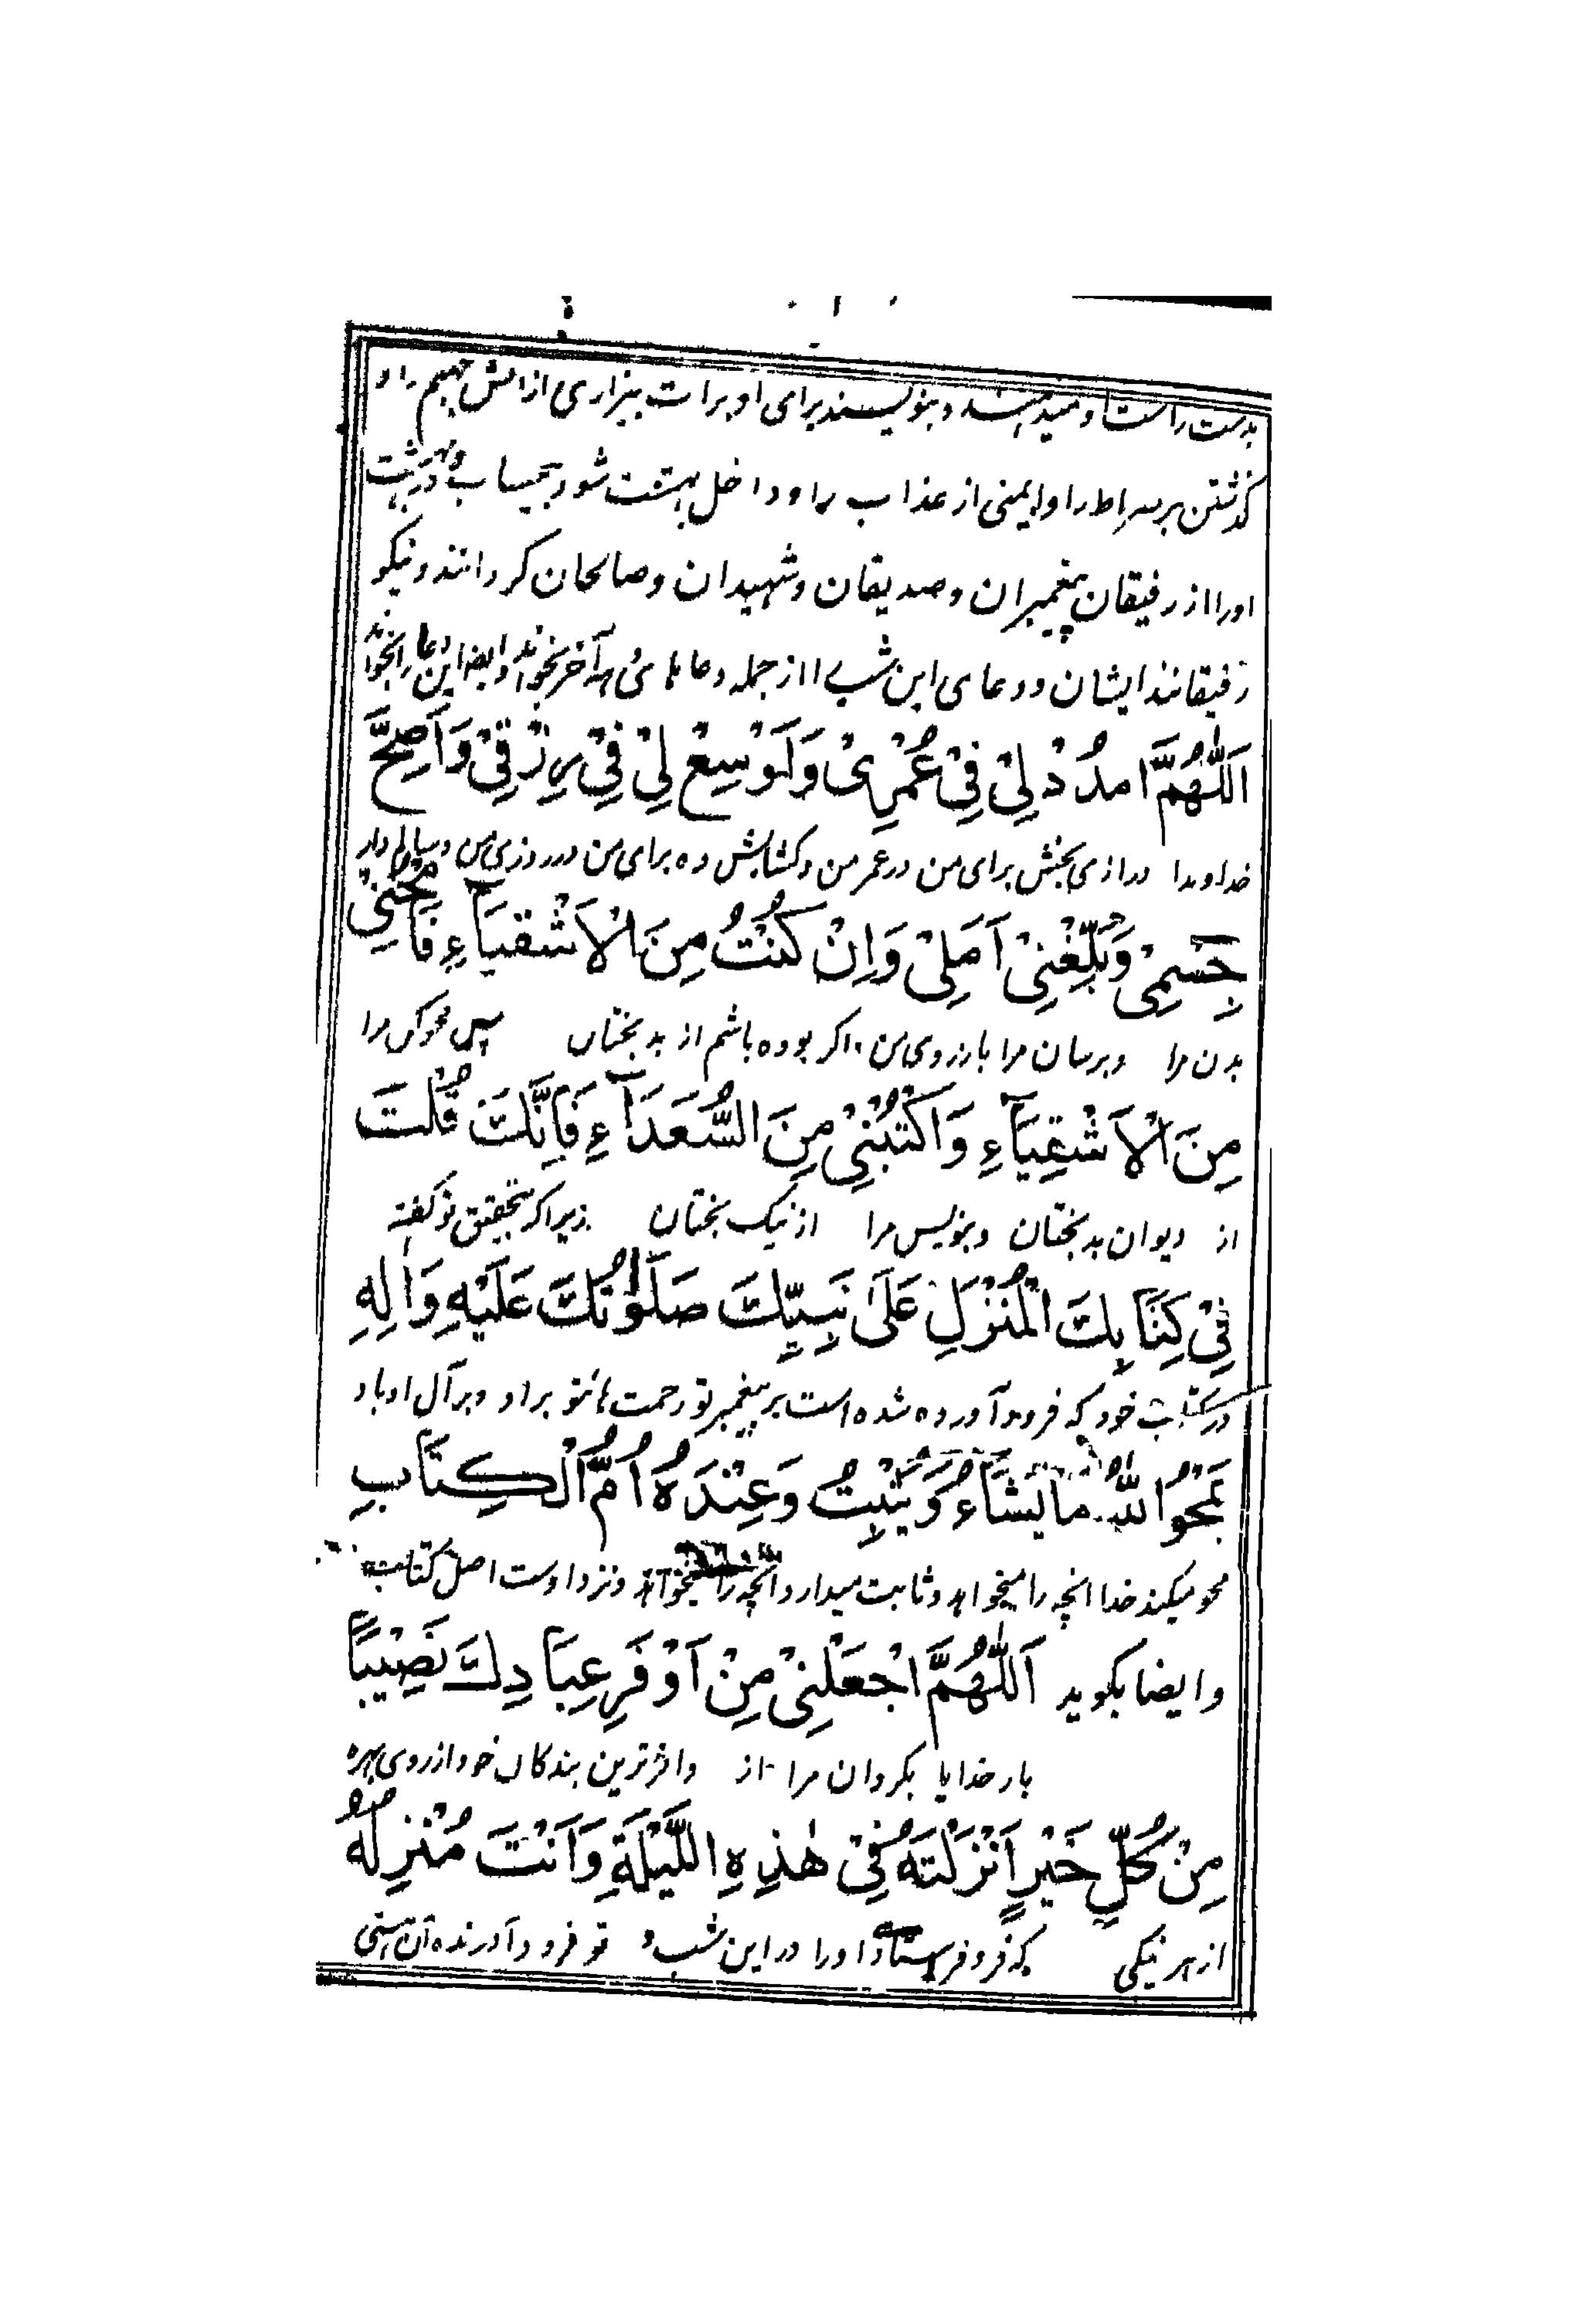 بدست راست او میدهند و بنویسند برای او برات بیزاری از اتش جهنم را و
گذشتن بر صراط را و ایمنی از عذاب را و داخل بهشت شود بیحساب و در بهشت
اورا از رفیقان پیغمبران و صدیقان و شهیدان و صالحان کردانند و نیکو
رفیقانند ایشان و دعای این شب را از جمله دعاهای آخر بخواند و ایضا این دعا را بخواند
اَللّٰهُمَّ امْدُدْ لِیْ فِیْ عُمْرِیْ وَاَوْسِعْ لِیْ فِیْ رِزْقِیْ وَاَصِحَّ
خداوندا درازی بخش برای من در عمر من و کشایش ده برای من در روزی من و سالم دار
جِسْمِیْ وَبَلِّغْنِیْ اَمَلِیْ وَاِنْ کُنْتُ مِنَ الْاَشْقِیَآءِ فَامْحُنِیْ
بدن مرا و برسان مرا بارزوی من و اکر بوده باشم از بدبختان پس محو کن مرا
مِنَ الْاَشْقِیَآءِ وَاکْتُبْنِیْ مِنَ السُّعَدَآءِ فَاِنَّكَ قُلْتَ
از دیوان بدبختان و بنویس مرا از نیک بختان زیرا که بتحقیق تو کفته
فِیْ کِتَابِكَ الْمُنْزَلِ عَلٰی نَبِیِّكَ صَلَوٰاتُكَ عَلَیْهِ وَاٰلِهِ
در کتاب خود که فرود آورده شده است بر پیغمبر تو رحمت هائتو بر او و بر آل او باد
یَمْحُو اللّٰهُ مَا یَشَآءُ وَیُثْبِتُ وَعِنْدَهُ اُمُّ الْکِتَابِ
محو میکند خدا انچه را میخواهد و ثابت میدارد انچه را میخواهد و نزد اوست اصل کتاب
و ایضا بکوید اَللّٰهُمَّ اجْعَلْنِیْ مِنْ اَوْفَرِ عِبَادِكَ نَصِیْبًا
بار خدایا بکردان مرا از وافرترین بندکان خود از روی بهره
مِنْ کُلِّ خَیْرٍ اَنْزَلْتَهُ فِیْ هٰذِهِ اللَّیْلَةِ وَاَنْتَ مُنْزِلُهُ
از هر نیکی که فرو فرستادۀ اورا در این شب و تو فرود آورنده آن هستی